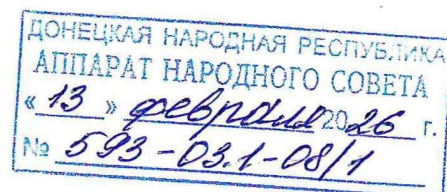 ДОНЕЦКАЯ НАРОДНАЯ РЕСПУБЛИКА
АППАРАТ НАРОДНОГО СОВЕТА
« 13 » февраля 2026 г.
№ 593-03.1-08/1